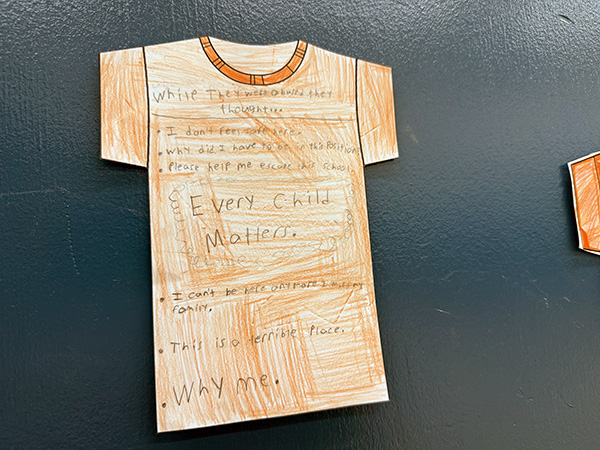 While They were abused they
thought...
• I don't feel safe here.
• Why did I have to be in this Position
• Please help me escape this school.
Every Child
Matters.
• I can't be here any more I miss my
family.
• This is a terrible Place.
• Why me.